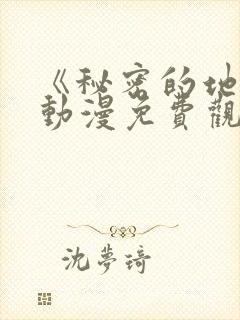 《秘密的地
動漫免費觀
沈夢琦